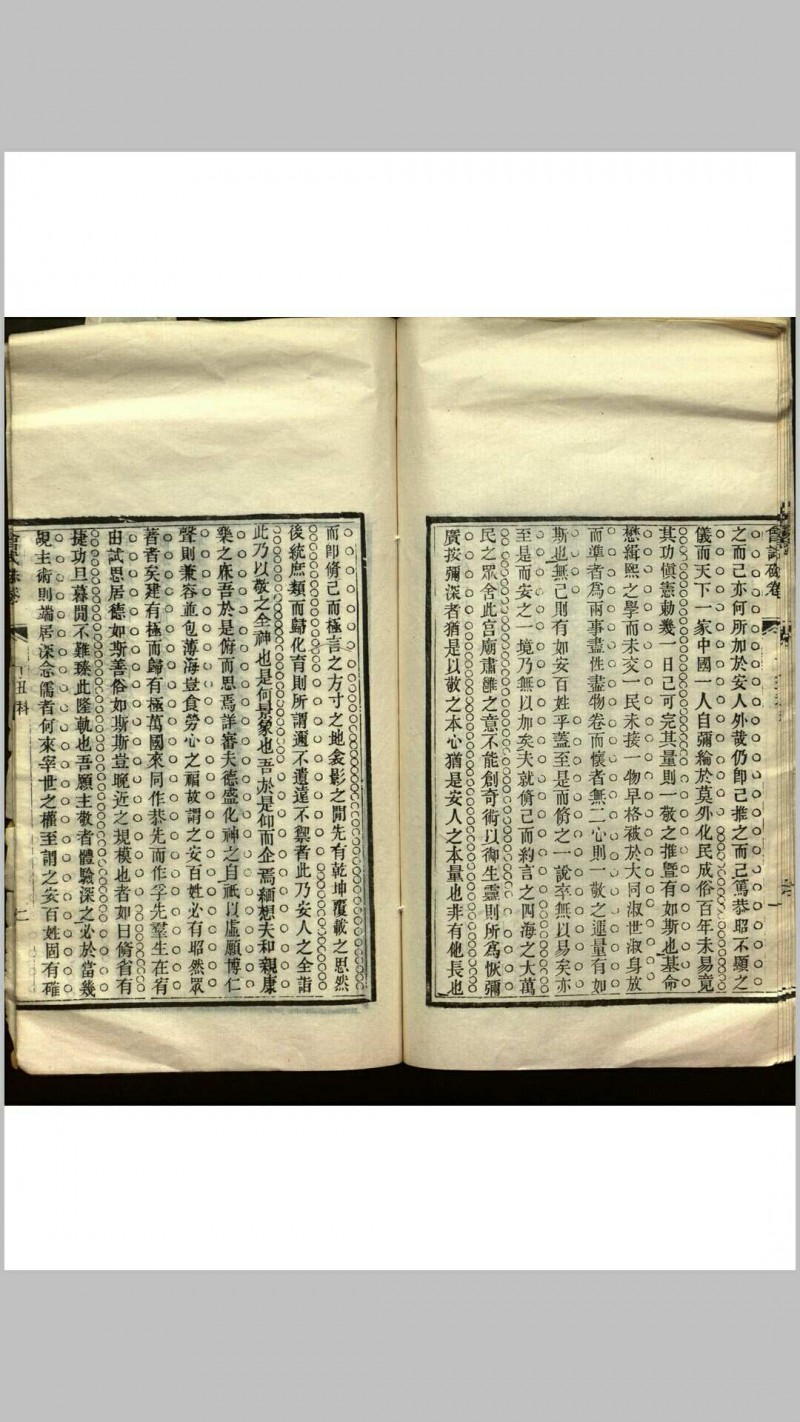 會試硃卷
一
之而已亦何所加於安人外哉仍卽己推之而已篤恭昭不顯之
儀而天下一家中國一人自彌綸於莫外化民成俗百年未易竟
其功愼憲勅幾一日己可完其量則一敬之推曁有如斯也基命
懋緝熙之學而未交一民未接一物早格被於大同淑世淑身放
而準者為兩事盡性盡物卷而懷者無二心則一敬之運量有如
斯也無已則有如安百姓乎蓋至是而脩之一說卒無以易矣亦
至是而安之一境乃無以加矣夫就脩己而約言之四海之大萬
民之眾舍此宮廟肅雝之意不能創奇術以御生靈則所為恢彌
廣按彌深者猶是以敬之本心猶是安人之本量也非有他長也
而卽脩己而極言之方寸之地衾影之閒先有乾坤覆載之思然
後統庶類而歸化育則所謂邇不遺遠不禦者此乃安人之全詣
此乃以敬之全神也是何景象也吾於是仰而企焉緬想夫和親康
樂之庥吾於是俯而思焉詳審夫德盛化神之自祇以虛願博仁
聲則兼容並包薄海豈食勞心之福故謂之安百姓必有昭然眾
著者矣建有極而歸有極萬國來同作恭先而作孚先羣生在宥
由試思居德如斯善俗如斯斯豈晚近之規模也者如日脩省有
捷功旦暮閒不難臻此隆軌也吾願主敬者體驗深之必於當幾
覘主術則端居深念儒者何來宰世之權至謂之安百姓固有確
會試硃卷
丑科
二